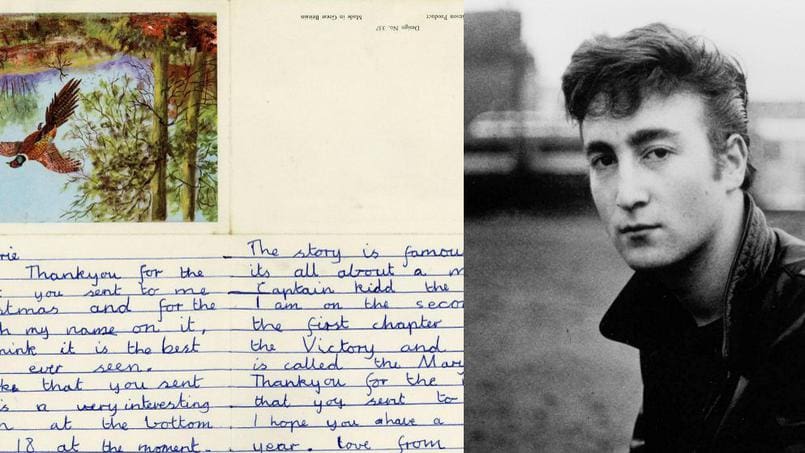 Made in Great Britain
Design No.
Product
rie
Thankyou for the
you sent to me
stmas and for the
h my name on it,
hink it is the best
ever seen.
that you sent
is a very interesting
at the bottom
18 at the moment.
The story is famou
its all about a m
Captain kidd the
I am on the secon
the first chapter
the Victory and
is called the Mary
Thankyou for the
that you sent to
I hope you ahave a
year. love from